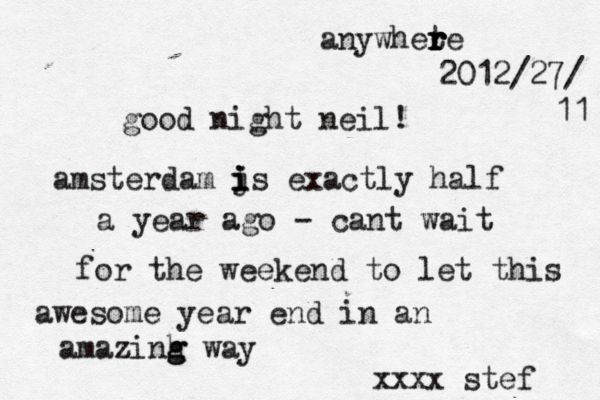 anywhere
2012/27/
11
good night neil!
amsterdam is exactly half
a year ago - cant wait
for the weekend to let this
awesome year end in an
amazing way
xxxx stef